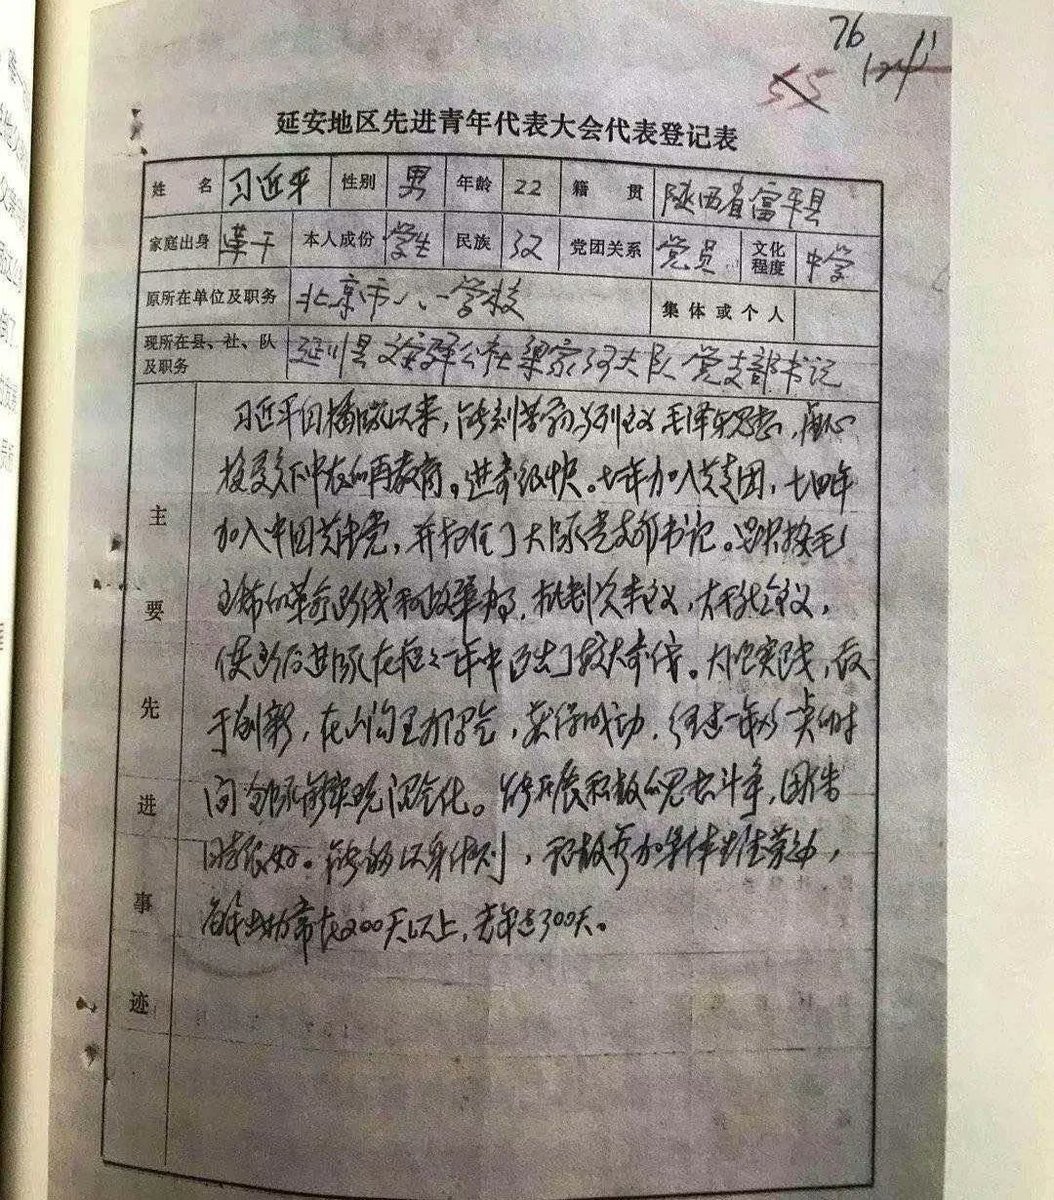 76
55
延安地区先进青年代表大会代表登记表
姓 名 习近平 性别 男 年龄 22 籍 贯 陕西省富平县
家庭出身 革干 本人成份 学生 民族 汉 党团关系 党员 文化程度 中学
原所在单位及职务 北京市八一学校 集体或个人
现所在县、社、队及职务 延川县文安驿公社梁家河大队党支部书记
主要先进事迹
习近平同 以来,能刻苦学习马列主义毛泽东思想,虚心
接受贫下中农的再教育。进步很快。 年加入共青团,七四年
加入中国共产党,并担任了大队党支部书记。 按毛
主席的革命路线和政策办事,批判资本主义,大干社会主义,
使 后进队在 一年中 出了较大 。大胆实践,敢
于创新,在 里办沼气,获得成功,经过一年多 的时
间 队 实现沼气化。能开展积极的思想斗争,团结
同志很好。能够以身作则,积极参加集体生产劳动,
每年出勤常在200天以上,去年达300天。